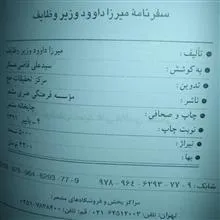 سفرنامهٔ میرزا داوود وزیر وظایف
• تألیف: میرزا داوود وزیر وظایف
• به کوشش: سیدعلی قاضی عسکر
• تدوین: مرکز تحقیقات حج
• ناشر: مؤسسه فرهنگی هنری مشعر
• چاپ و صحافی: چاپخانه مشعر
• نوبت چاپ:
• تیراژ: ۵۰۰۰ نسخه
• بها:
شابک: ۹ - ۷۷ - ۶۲۹۳ - ۹۶۴ - ۹۷۸
978-964-6293-77-9
مراکز پخش و فروشگاه‌های مشعر:
تهران: